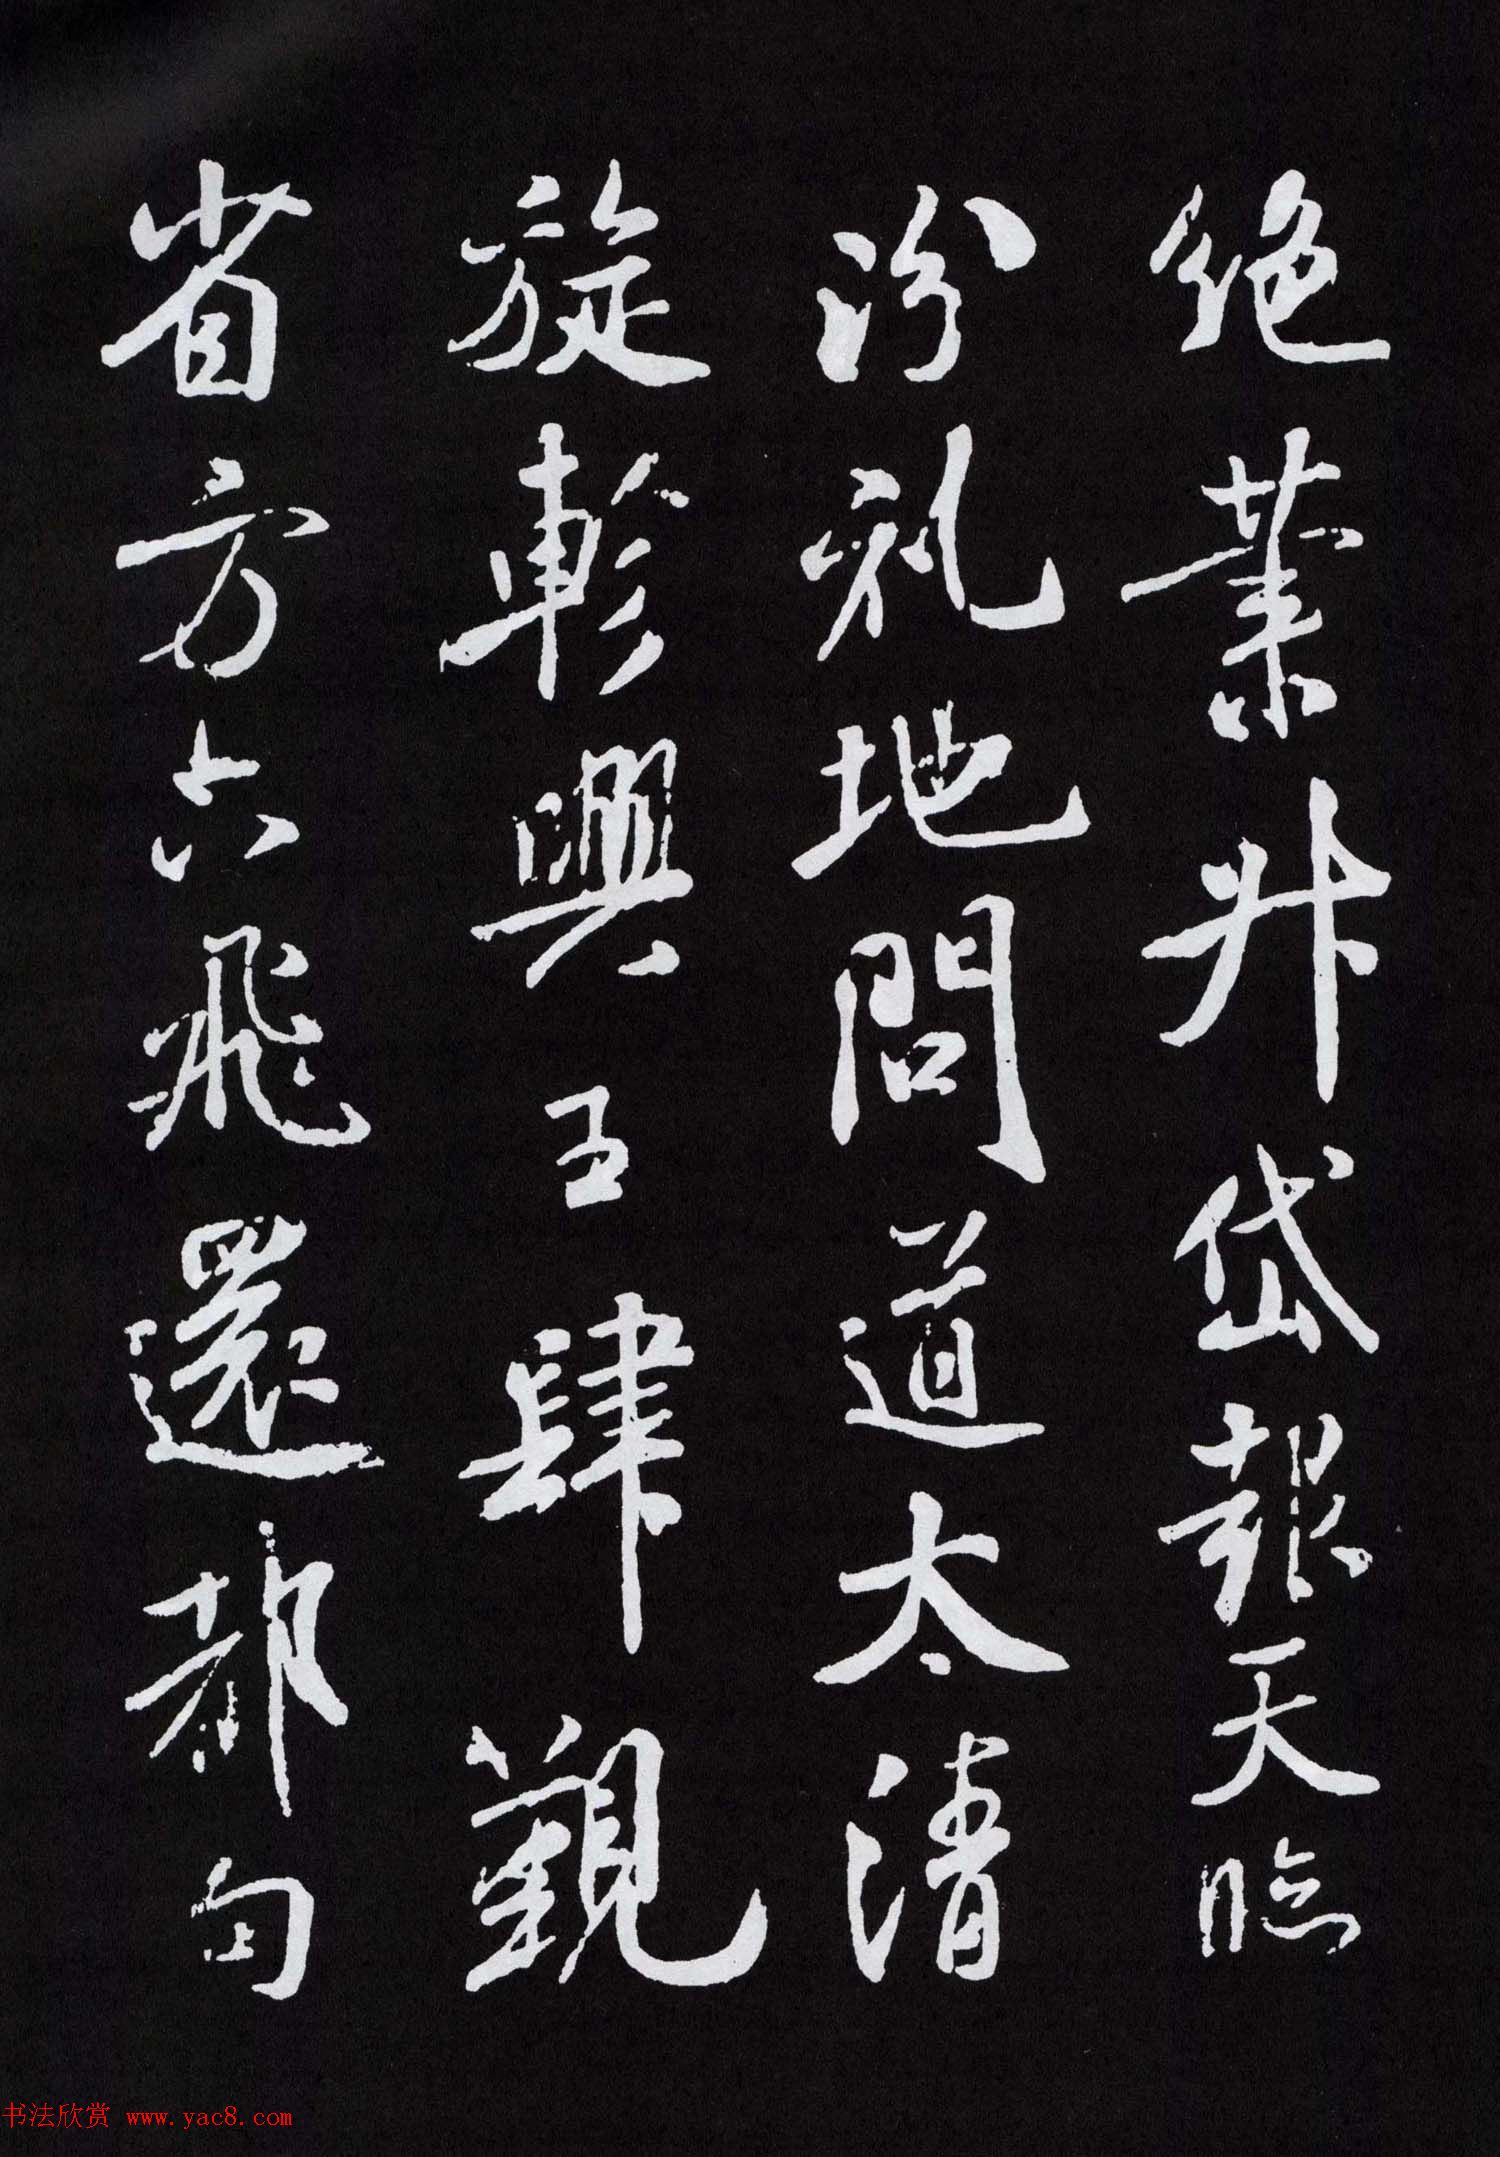 絕業升岱報天臨
汾礼地問道太清
旋軫興王肆觀
省方六飛還都句
书法欣赏 www.yac8.com